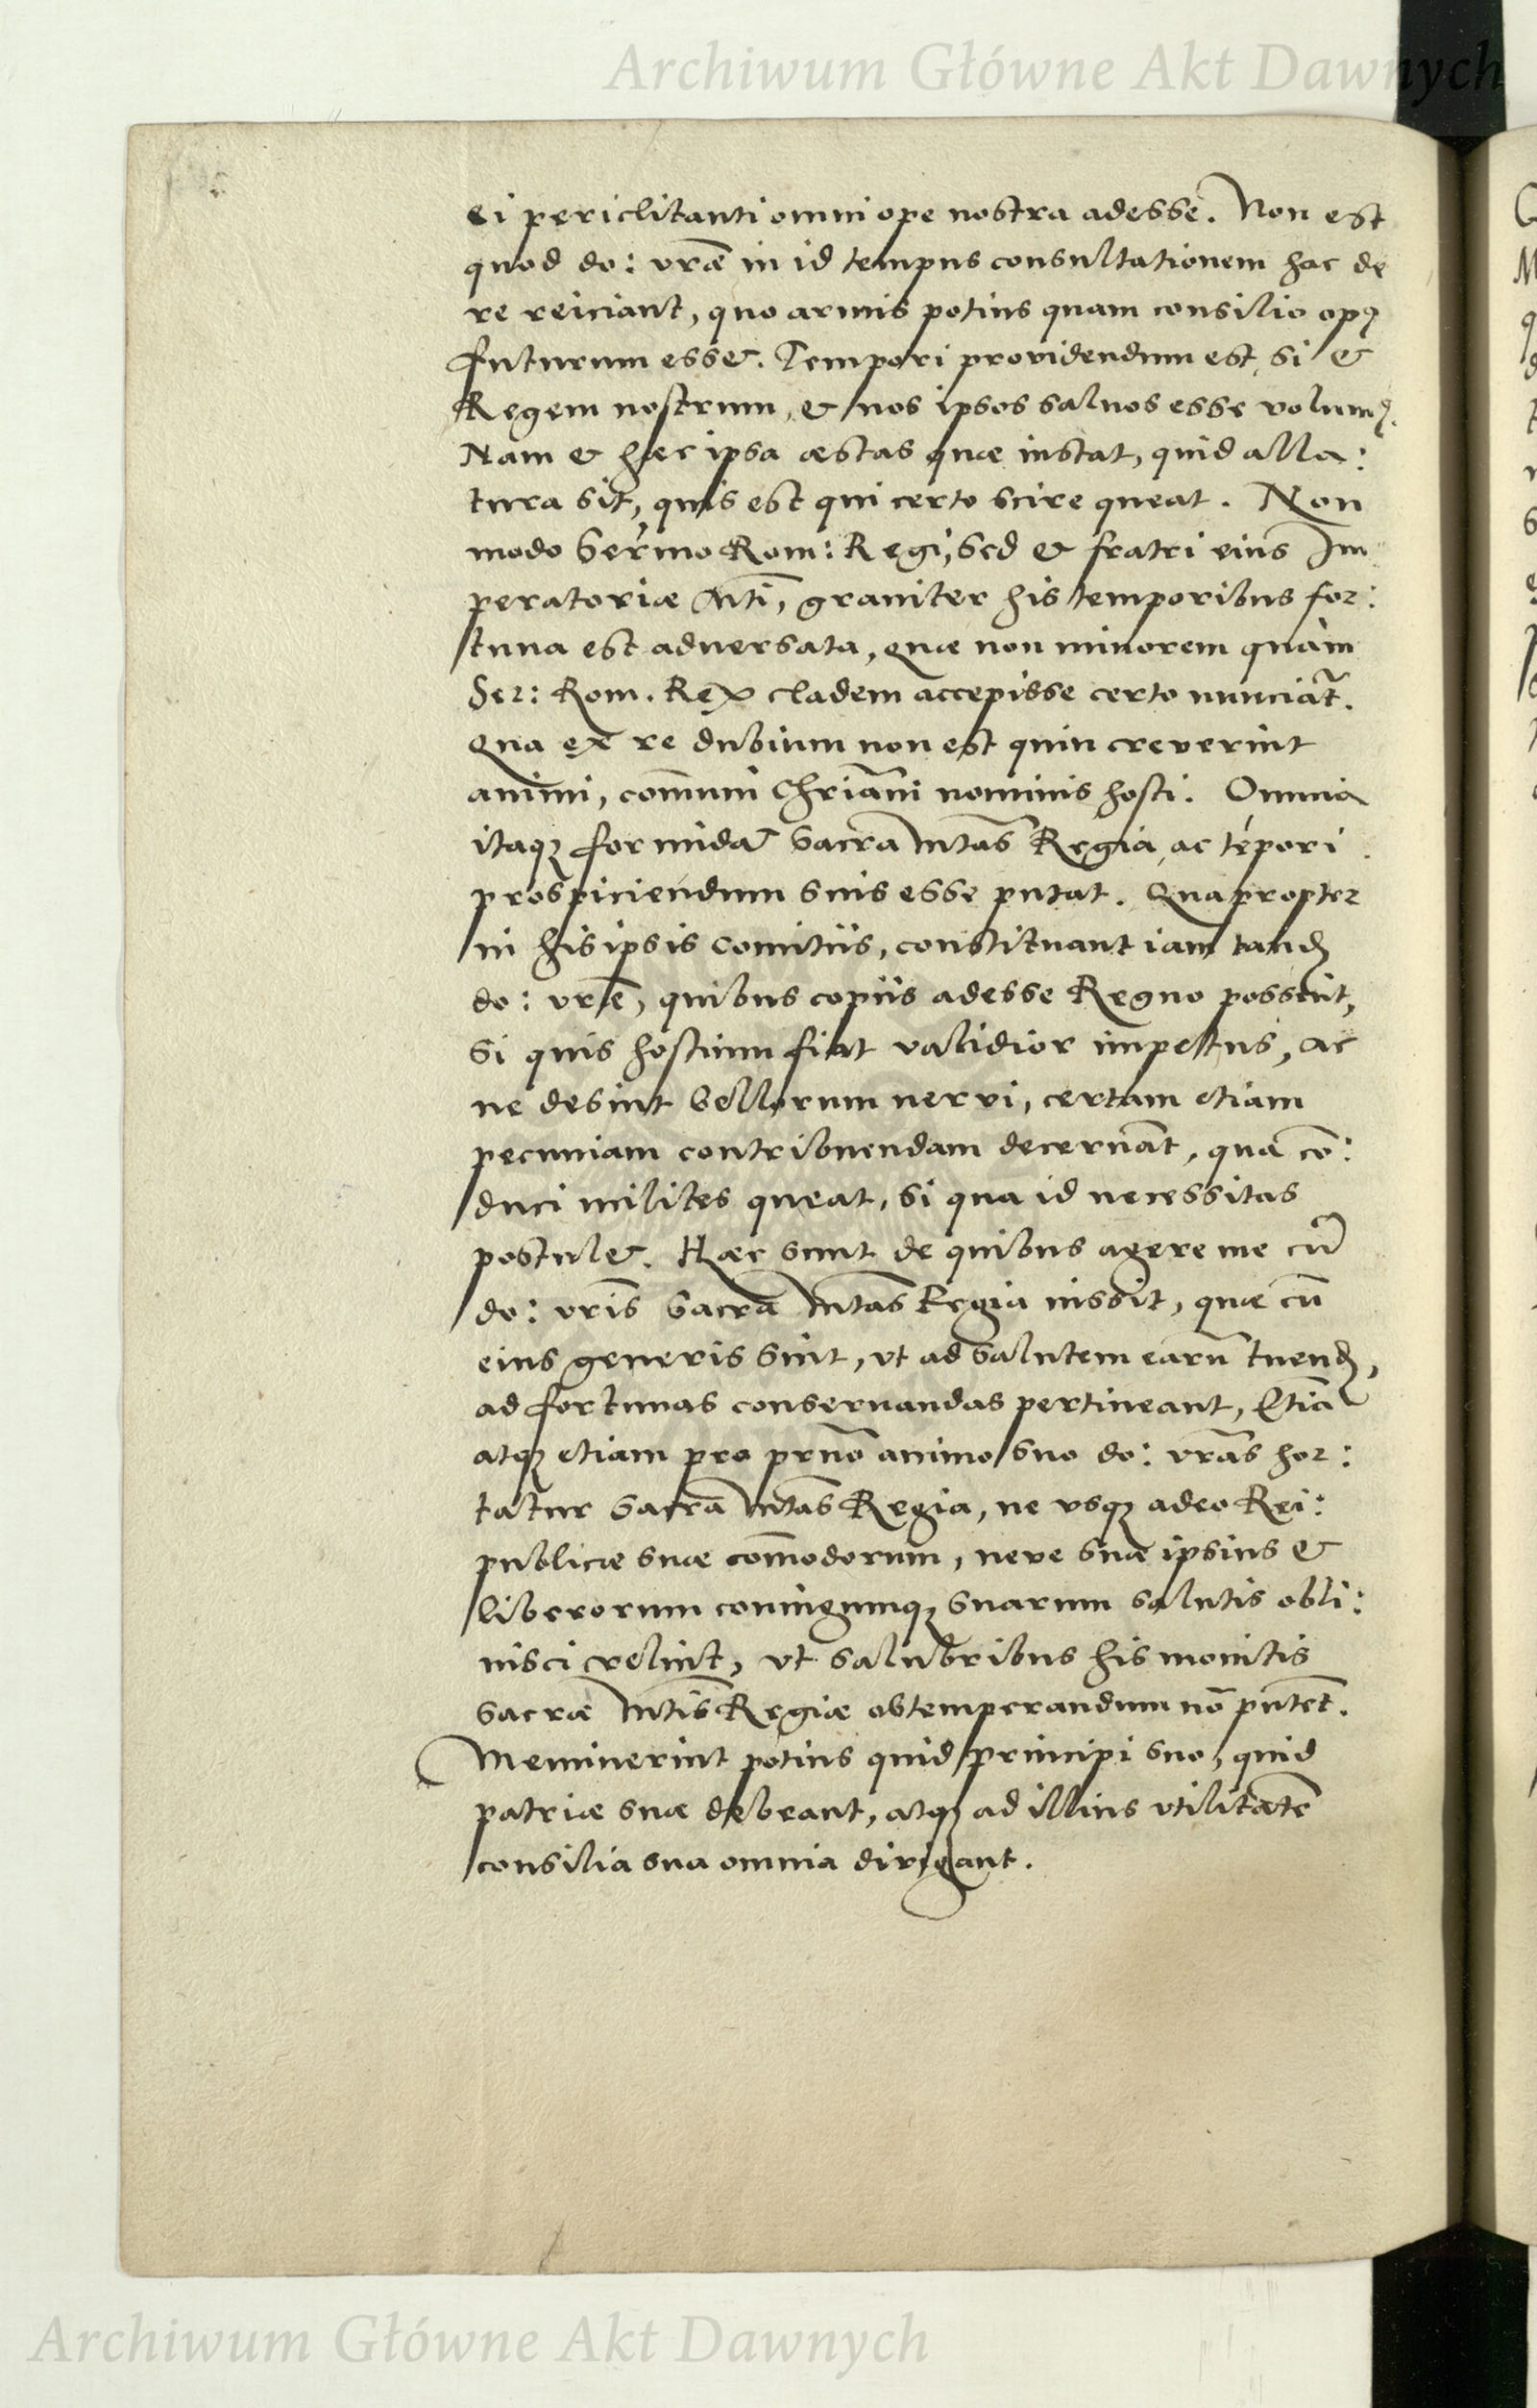 Archiwum Główne Akt Dawnych
ei periclitanti omni ope nostra adesse. Non est
quod do: vrae in id tempus consultationem hac de
re reiciant, quo armis potius quam consilio opus
futurum esset. Tempori providendum est, si &
Regem nostrum, & nos ipsos saluos esse volumus.
Nam & haec ipsa aestas quae instat, quid alla:
tura sit, quis est qui certo scire queat. Non
modo Sermo Rom: Regi, sed & fratri eius Im
peratoriae Mti, grauiter his temporibus for:
tuna est aduersata, quae non minorem quàm
Ser: Rom. Rex cladem accepisse certo nunciat̃.
Qua ex re dubium non est quin creverint
animi, com̃uni Chriani nominis hosti. Omnia
itaq; formidat Sacra Mtas Regia, ac tẽpori
prospiciendum suis esse putat. Quapropter
in his ipsis Comitiis, constituant iam tandẽ
do: vrẽ, quibus copiis adesse Regno possint,
si quis hostium fiat validior impetus, ac
ne desint bellorum nervi, certam etiam
pecuniam contribuendam decernãt, qua cõ:
duci milites queat, si qua id necessitas
postulet. Haec sunt de quibus agere me cũ
do: vris Sacra Mtas Regia iussit, quae cũ
eius generis sint, vt ad salutem earũ tuend,
ad fortunas conseruandas pertineant, Etiã
atq; etiam pro prno animo suo do: vras hor:
tatur Sacra Mtas Regia, ne vsq; adeo Rei:
publicae suae com̃odorum, neve suae ipsius &
liberorum coniugumq; suarum salutis obli:
uisci velint, vt salubribus his monitis
Sacrae Mtis Regiae obtemperandum nõ putẽt.
Meminerint potius quid principi suo, quid
patriae suae debeant, atq; ad illius vtilitatẽ
consilia sua omnia dirigant.
Archiwum Główne Akt Dawnych